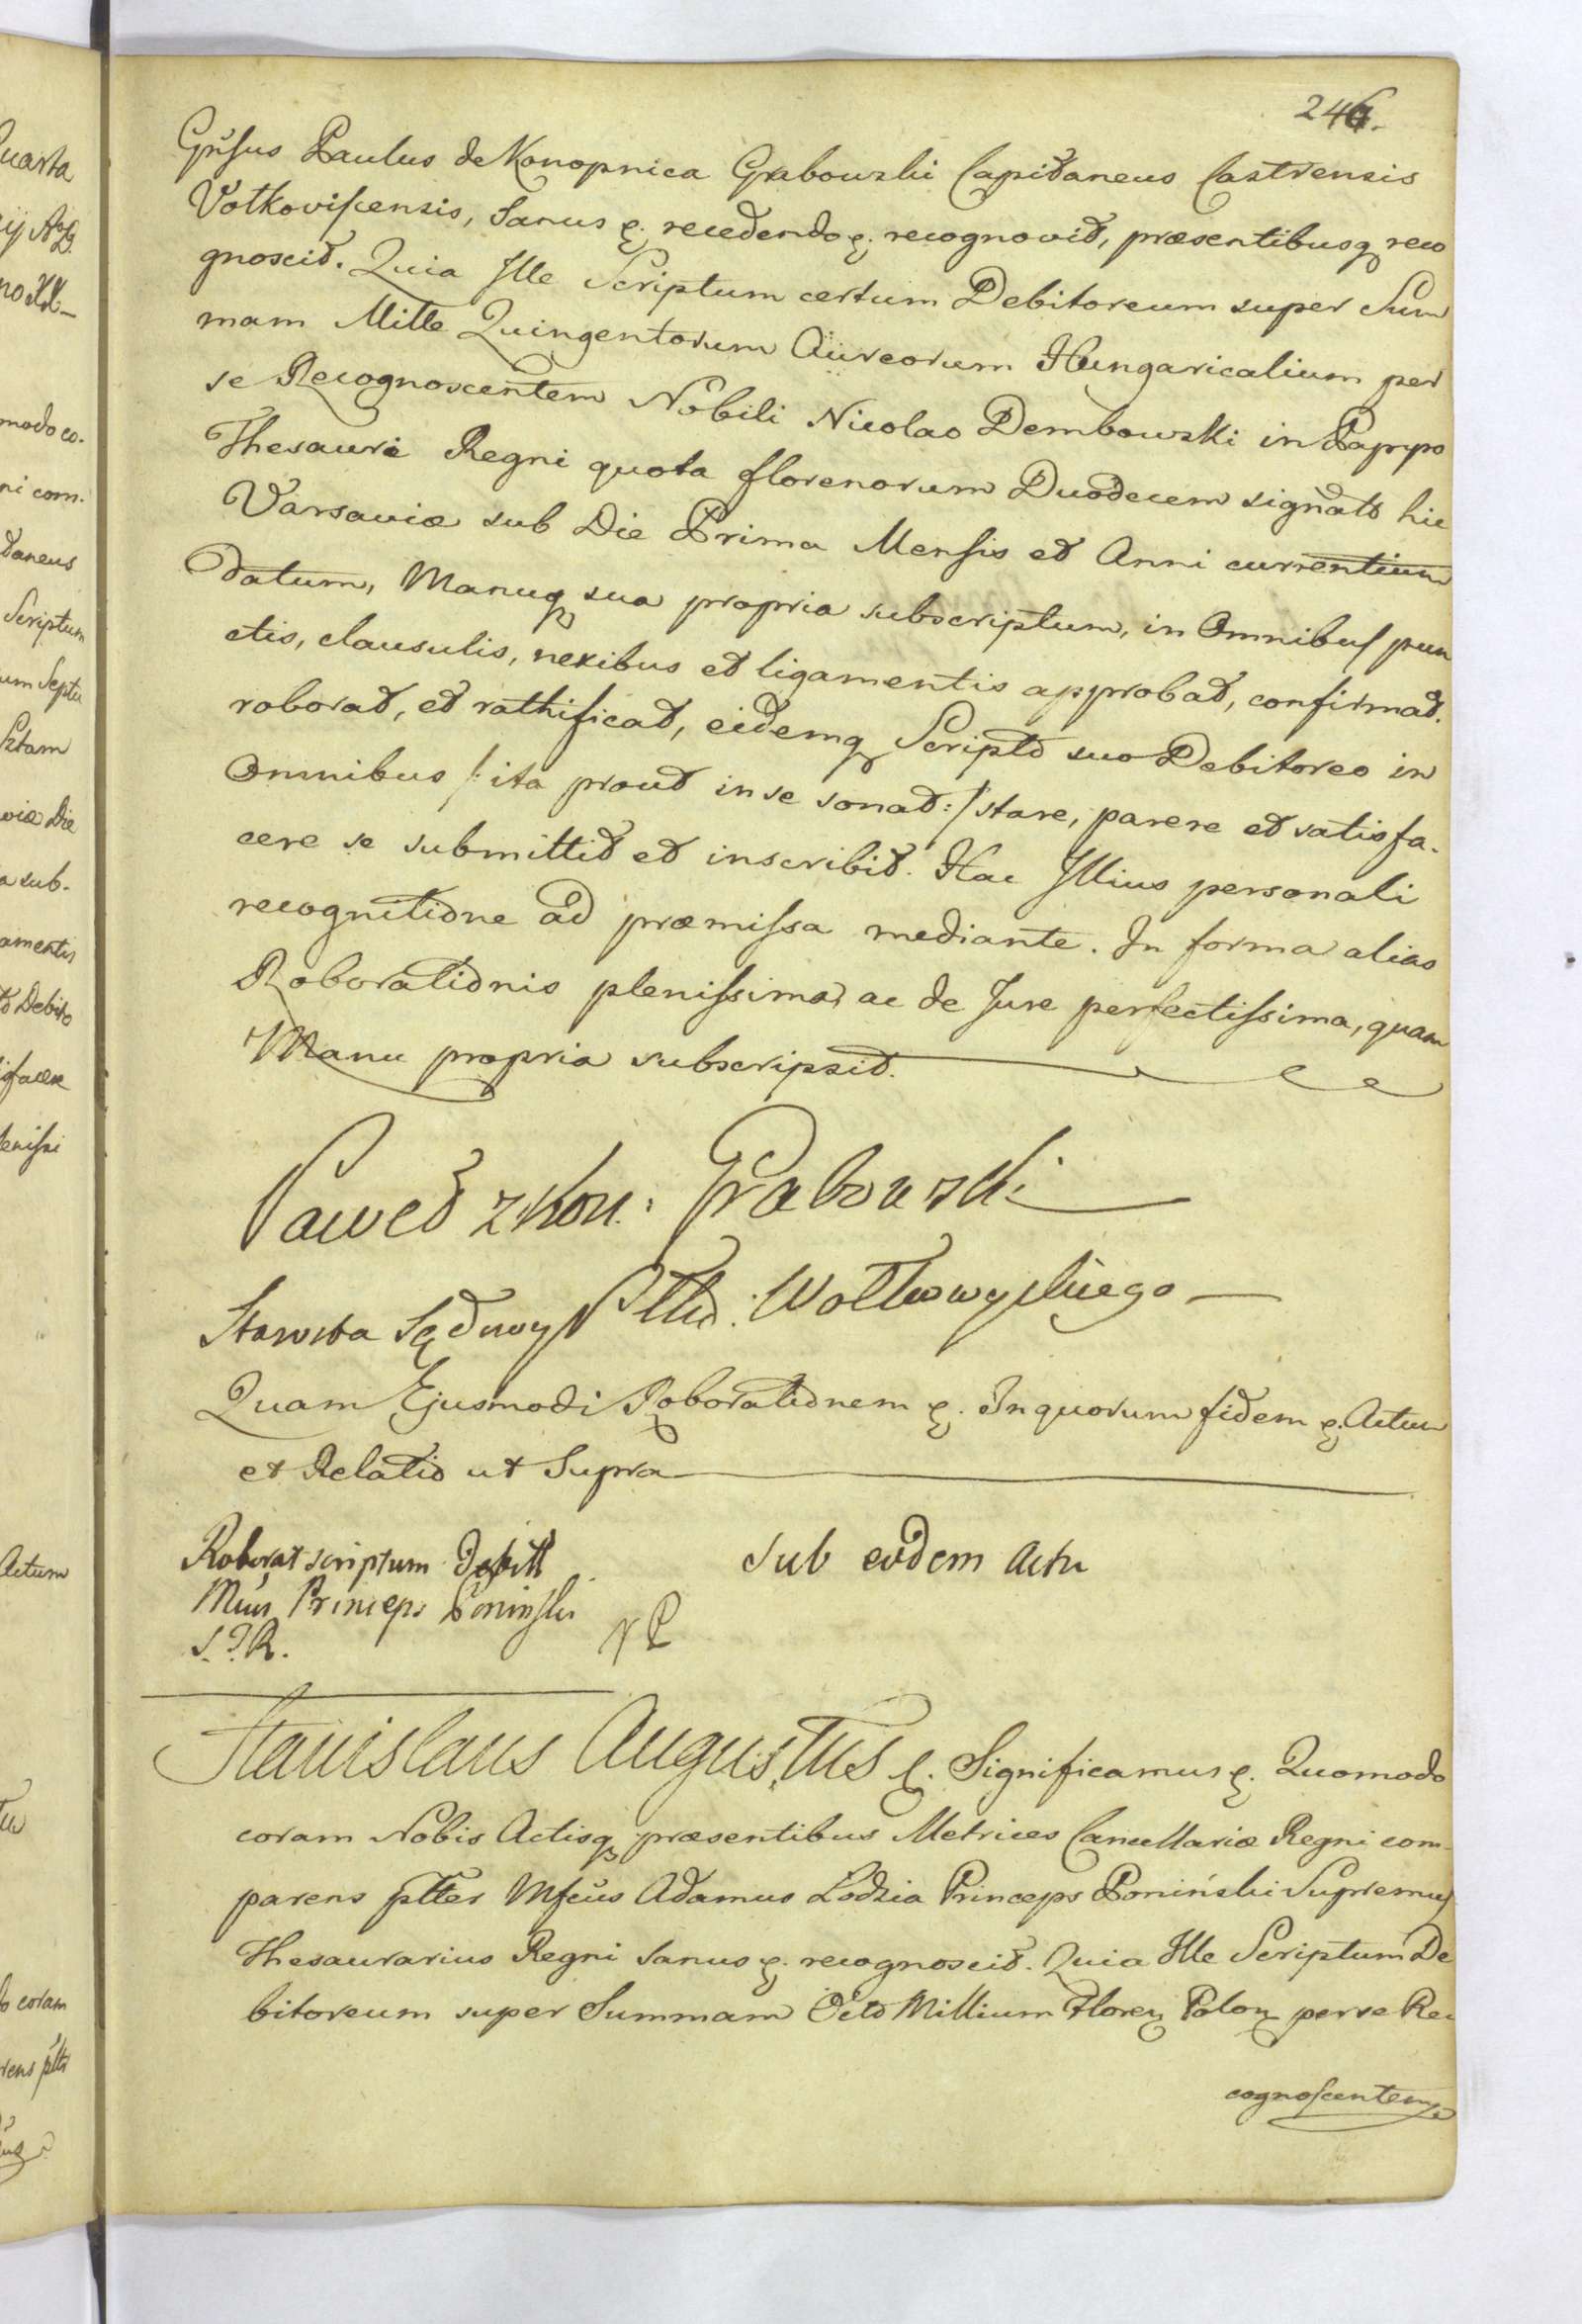 246.
Gn̄sus Paulus de Konopnica Grabowski Capitaneus Castrensis
Volkoviscensis, Sanus &. recedendo &. recognovit, præsentibusq₃ reco
gnoscit. Quia Ille Scriptum certum Debitoreum super Sum
mam Mille Quingentorum Aureorum Hungaricalium per
se Recognoscentem Nobili Nicolao Dembowski in Papyro
Thesauri Regni quota florenorum Duodecem signato hic
Varsaviæ sub Die Prima Mensis et Anni currentium
datum, Manuq₃ sua propria subscriptum, in Omnibus pun
ctis, clausulis, nexibus et ligamentis approbat, confirmat.
roborat, et rathificat, eidemq₃ Scripto suo Debitoreo in
Omnibus /: ita prout in se sonat :/ stare, parere et satisfa-
cere se submittit et inscribit. Hac Illius personali
recognitione ad præmissa mediante. In forma alias
Roborationis plenissima, ac de Jure perfectissima, quam
Manu propria subscripsit.
Paweł z Kon: Grabowski
Starosta Sądowy Pttu. Wołkowyskiego
Quam Ejusmodi Roborationem &. In quorum fidem &. Actum
et Relatio ut Supra
Roborat scriptum Debitt
Sub eodem Actu
Mcus Princeps Poninski
S. T. R.
Stanislaus Augustus &. Significamus &. Quomodo
coram Nobis Actisq₃ præsentibus Metrices Cancellariæ Regni com-
parens pltter Mfcus Adamus Lodzia Princeps Poniński Supremus
Thesaurarius Regni Sanus &. recognoscit. Quia Ille Scriptum De
bitoreum super Summam Octo Millium Floren Polon per se Re
cognoscentem